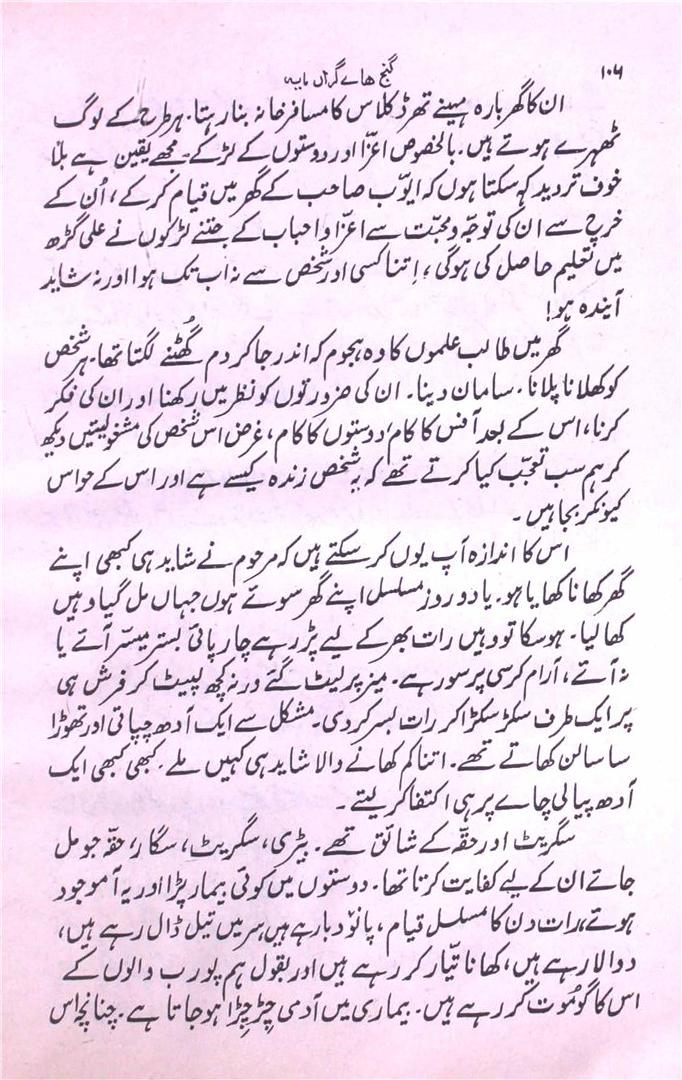 ۱۰۶
گنج ہاے گراں مایہ
ان کا گھر بارہ مہینے تھرڈ کلاس کا مسافر خانہ بنا رہتا۔ ہر طرح کے لوگ
ٹھہرے ہوتے ہیں۔ بالخصوص اعزّا اور دوستوں کے لڑکے۔ مجھے یقین ہے بلا
خوف تردید کہہ سکتا ہوں کہ ایوّب صاحب کے گھر میں قیام کرکے، اُن کے
خرچ سے ان کی توجّہ و محبّت سے اعزّا و احباب کے جتنے لڑکوں نے علی گڑھ
میں تعلیم حاصل کی ہوگی، اِتنا کسی اور شخص سے نہ اب تک ہوا اور نہ شاید
آیندہ ہو!
گھر میں طالب علموں کا وہ ہجوم کہ اندر جا کر دم گھُٹنے لگتا تھا۔ ہر شخص
کو کھلانا پلانا۔ سامان دینا۔ ان کی ضرورتوں کو نظر میں رکھنا اور ان کی فکر
کرنا، اس کے بعد آفس کا کام، دوستوں کا کام، غرض اس شخص کی مشغولیتیں دیکھ
کر ہم سب تعجّب کیا کرتے تھے کہ یہ شخص زندہ کیسے ہے اور اس کے حواس
کیونکر بجا ہیں۔
اس کا اندازہ آپ یوں کر سکتے ہیں کہ مرحوم نے شاید ہی کبھی اپنے
گھر کھانا کھایا ہو۔ یا دو روز مسلسل اپنے گھر سوئے ہوں جہاں مل گیا وہیں
کھا لیا۔ ہو سکا تو وہیں رات بھر کے لیے پڑ رہے چارپائی بستر میسّر آئے یا
نہ آئے، آرام کرسی پر سو رہے۔ میز پر لیٹ گئے ورنہ کچھ لپیٹ کر فرش ہی
پر ایک طرف سکڑ سکڑا کر رات بسر کردی۔ مشکل سے ایک آدھ چپاتی اور تھوڑا
سا سالن کھاتے تھے۔ اتنا کم کھانے والا شاید ہی کہیں ملے۔ کبھی کبھی ایک
آدھ پیالی چاے پر ہی اکتفا کر لیتے۔
سگریٹ اور حقّہ کے شائق تھے۔ بیڑی، سگریٹ، سگار، حقّہ جو مل
جاتے ان کے لیے کفایت کرتا تھا۔ دوستوں میں کوئی بیمار پڑا اور یہ آ موجود
ہوئے، رات دن کا مسلسل قیام، پانؤ دبا رہے ہیں سر میں تیل ڈال رہے ہیں،
دوا لا رہے ہیں، کھانا تیّار کر رہے ہیں اور بقول ہم پورب والوں کے
اس کا گو مُوت کر رہے ہیں۔ بیماری میں آدمی چِڑچِڑا ہو جاتا ہے۔ چنانچہ اس